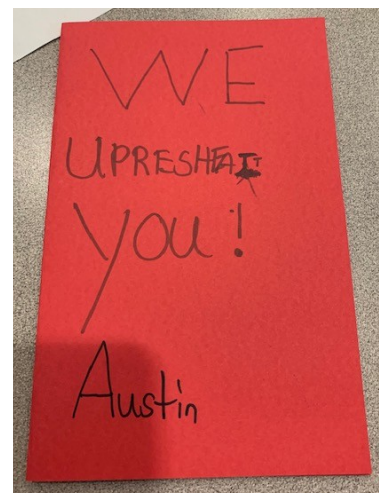 WE
UPRESHEAIT
YOU!
Austin